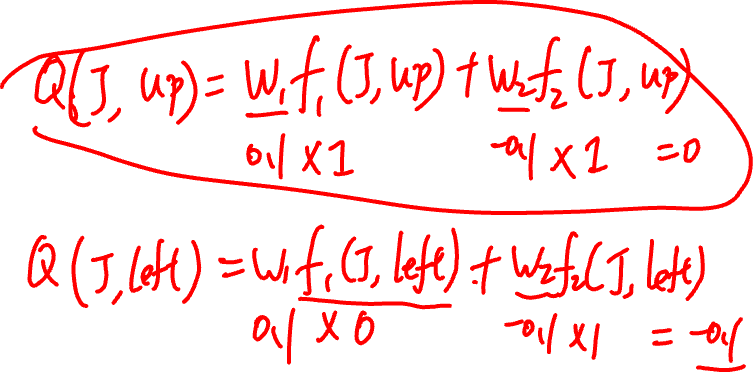 Q(J, up) = w₁f₁(J, up) + w₂f₂(J, up)
0.1 × 1 -0.1 × 1 = 0
Q(J, left) = w₁f₁(J, left) + w₂f₂(J, left)
0.1 × 0 -0.1 × 1 = -0.1